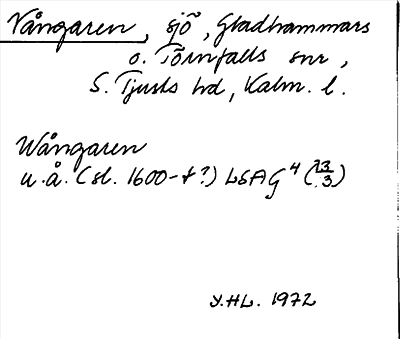 Vångaren, sjö, Gladhammars
o. Törnsfalls snr,
S. Tjusts hd, Kalm. l.
Wångaren
u.å. (sl. 1600-t?) LSAG⁴ (23/3)
Y.HL. 1972